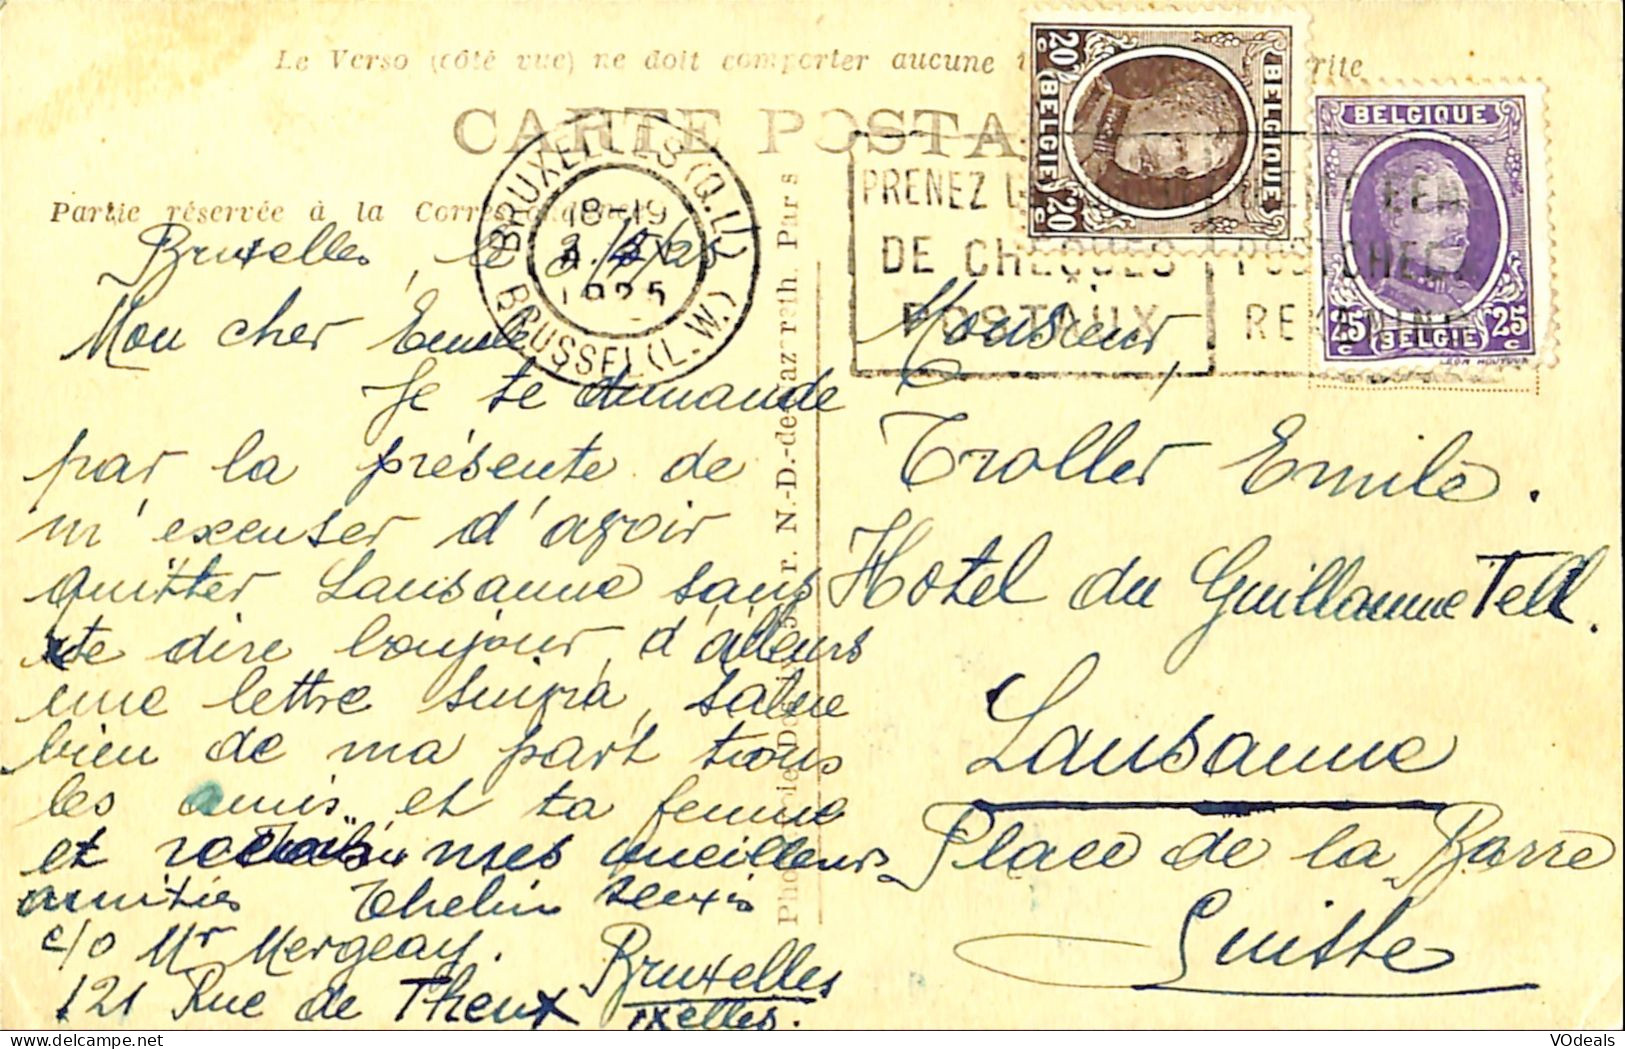 Le Verso (côté vue) ne doit comporter aucune
rite
CARTE POSTA
Partie réservée à la Corres
BRUXELLES (Q.L.)
18-19
1925
BRUSSEL (L.W.)
PRENEZ
DE CHEQUES
POSTAUX
EEN
POSTCHECK
REKENING
BELGIQUE
BELGIE
20 c
20 c
BELGIQUE
25 c
25 c
BELGIE
LEON HOUYOUX
Bruxelles, le
Mon cher Emile
Je te demande
par la présente de
m'excuser d'avoir
quitter Lausanne sans
te dire bonjour, d'ailleurs
une lettre suivra, salue
bien de ma part tous
les amis, et ta femme
et mes meilleurs
amitiés Thelin
c/o Mr Mergeay.
121 Rue de Theux Bruxelles
Ixelles.
Monsieur,
Troller Emile.
Hotel du Guillaume Tell.
Lausanne
Place de la Barre
Suisse
r. N.-D.-de-Nazareth. Paris
VDeals